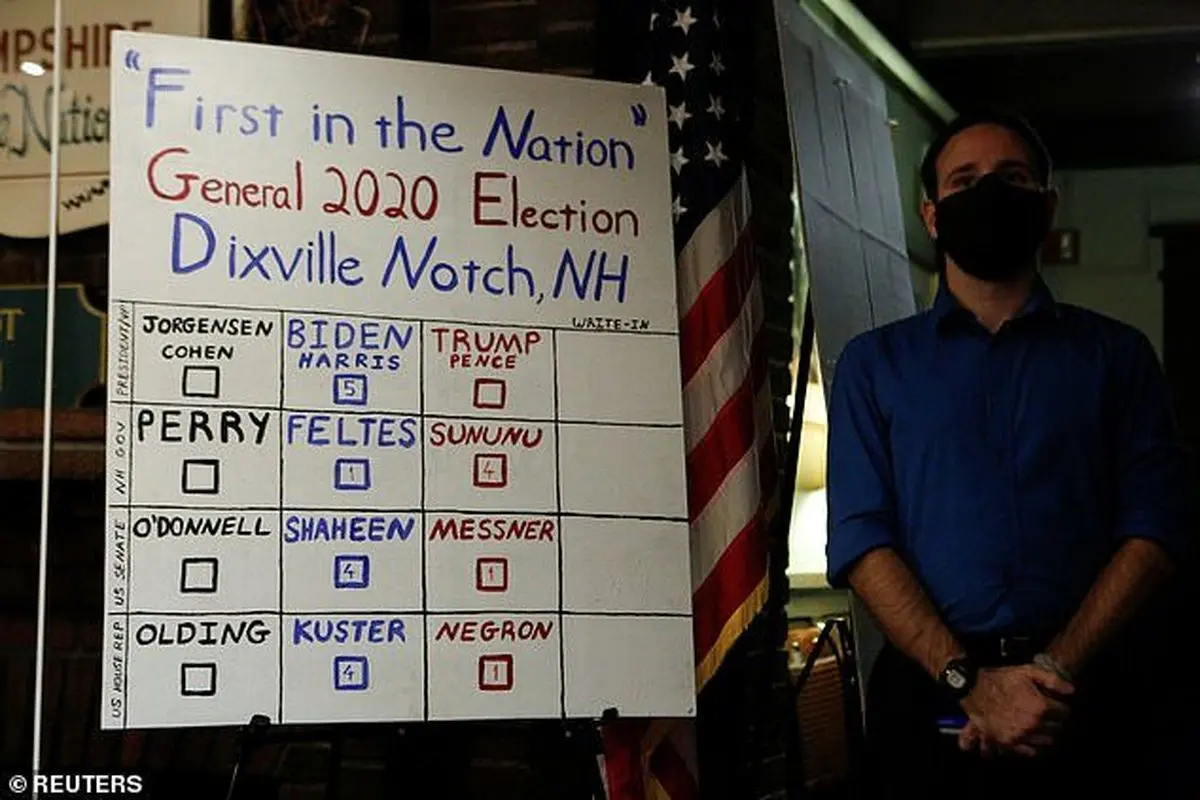 MPSHIRE
Natio
www
"First in the Nation"
General 2020 Election
Dixville Notch, NH
WRITE-IN
PRESIDENT/VP
JORGENSEN
COHEN
BIDEN
HARRIS
5
TRUMP
PENCE
NH GOV
PERRY
FELTES
1
SUNUNU
4
US SENATE
O'DONNELL
SHAHEEN
4
MESSNER
1
US HOUSE REP
OLDING
KUSTER
4
NEGRON
1
© REUTERS